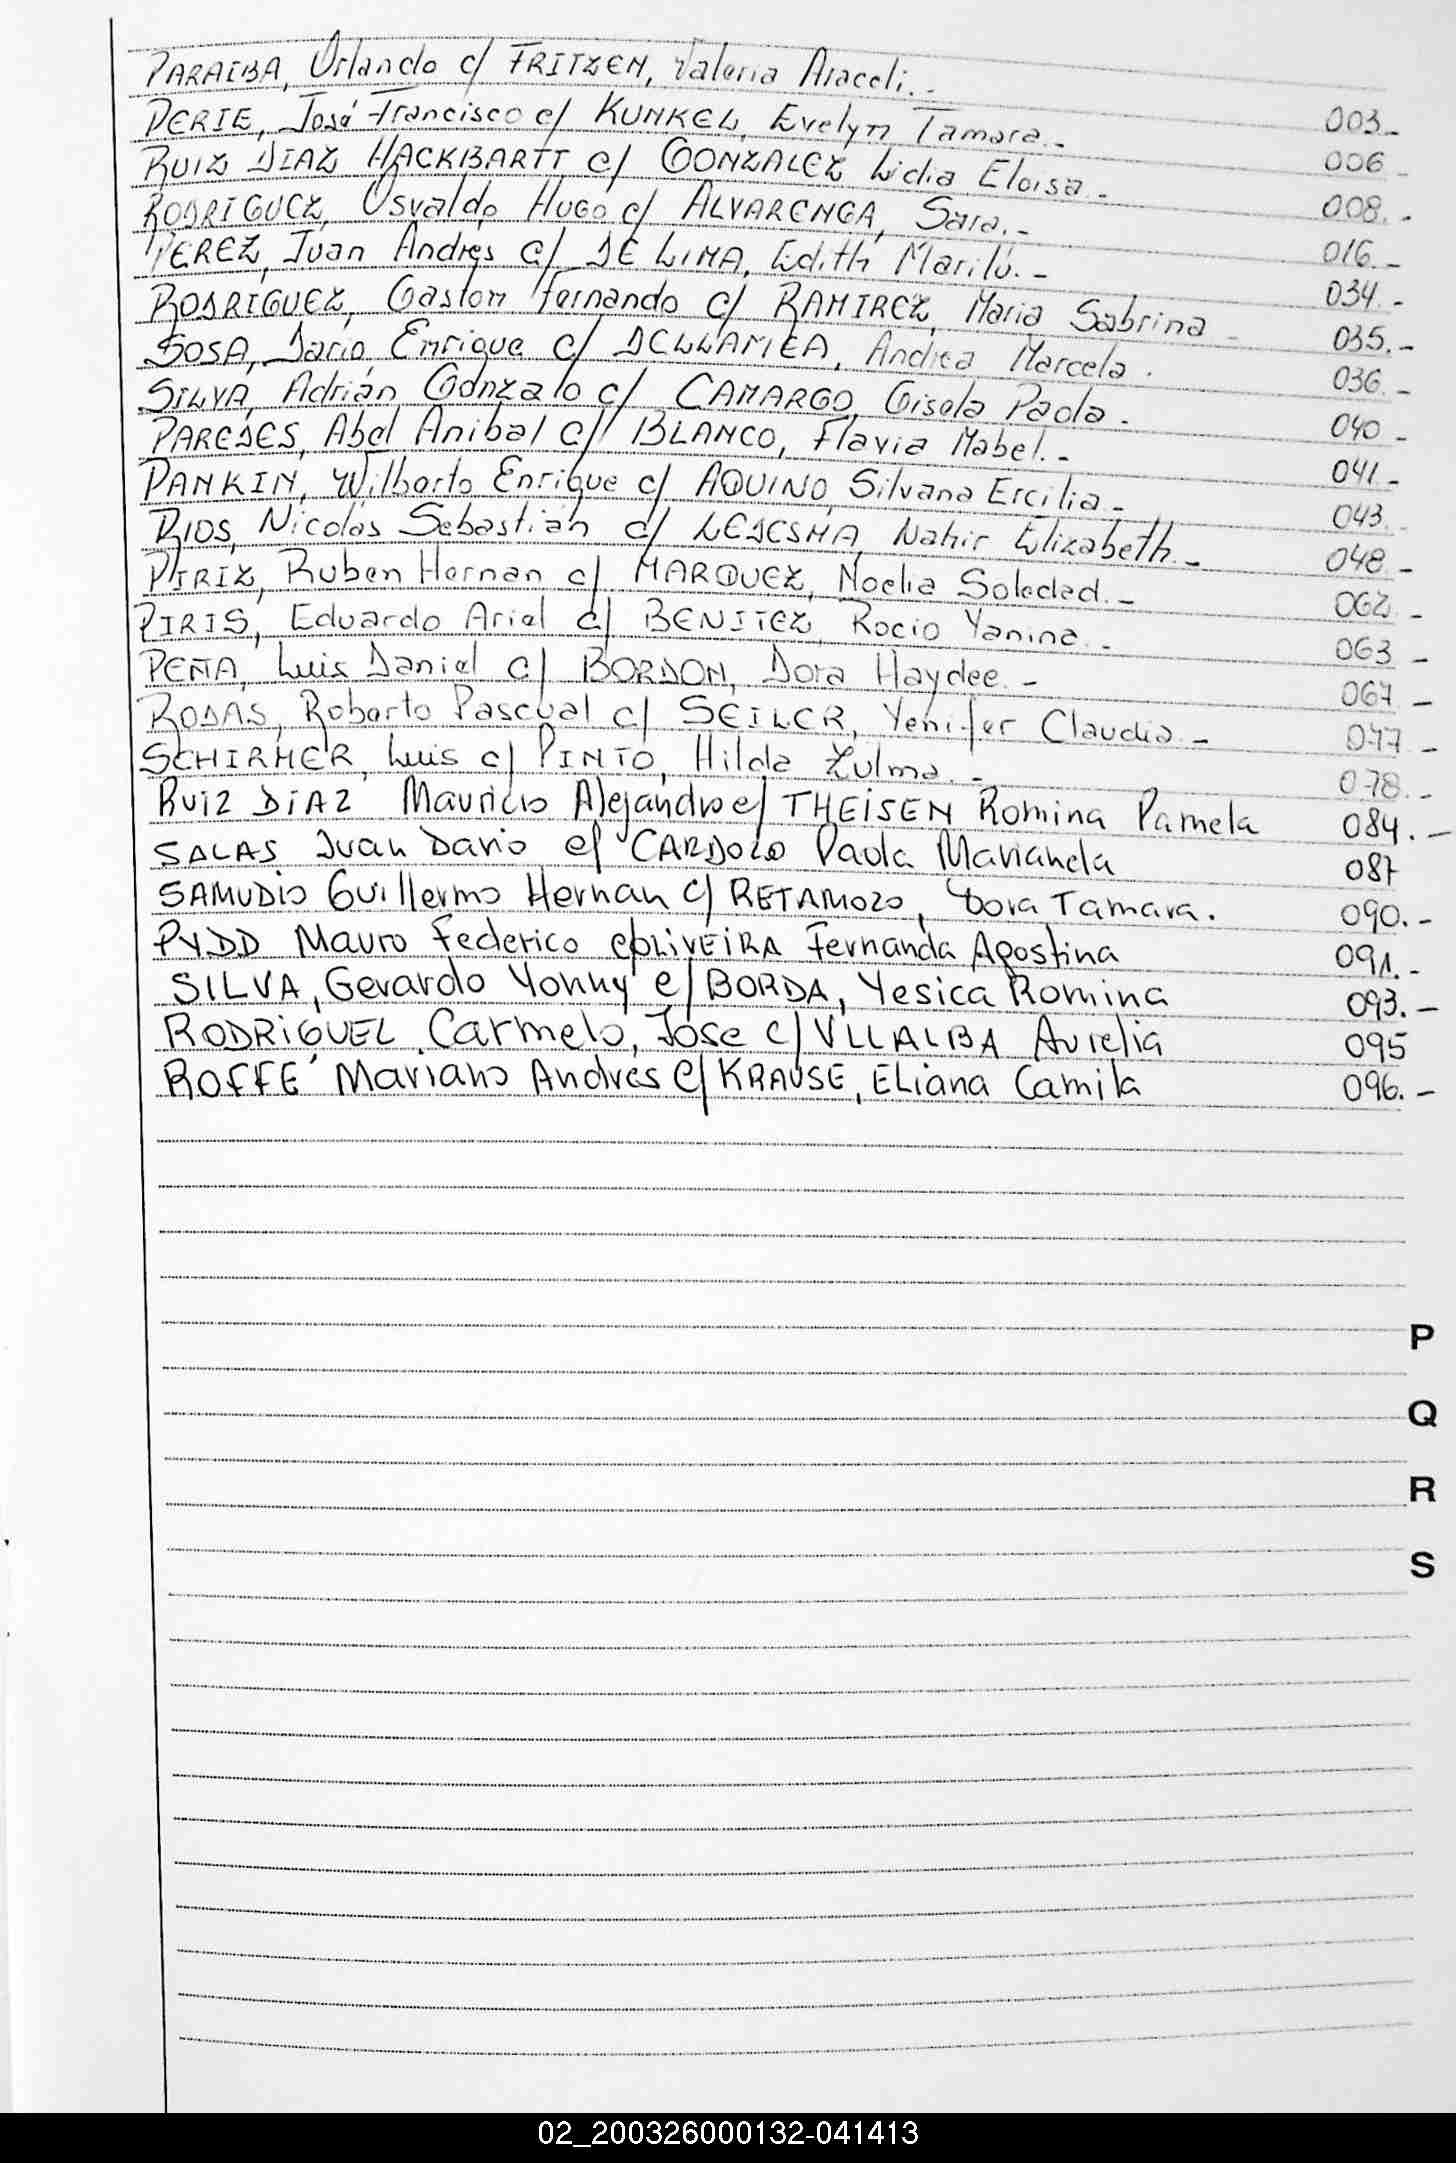 PARAIBA, Orlando c/ FRITZEN, Valeria Araceli.- 003.-
PERIE, José Francisco c/ KUNKEL, Evelyn Tamara.- 006.-
RUIZ DIAZ HACKBARTT c/ GONZALEZ Lidia Eloisa.- 008.-
RODRIGUEZ, Osvaldo Hugo c/ ALVARENGA, Sara.- 016.-
PEREZ, Juan Andres c/ DE LIMA, Edith Marilú.- 034.-
RODRIGUEZ, Gaston Fernando c/ RAMIREZ, Maria Sabrina - 035.-
SOSA, Dario Enrique c/ DELLAMEA, Andrea Marcela. 036.-
SILVA, Adrián Gonzalo c/ CAMARGO, Gisela Paola.- 040.-
PAREDES, Abel Anibal c/ BLANCO, Flavia Mabel.- 041.-
PANKIN, Wilberto Enrique c/ AQUINO, Silvana Ercilia.- 043.
RIOS, Nicolás Sebastián c/ LEDESMA, Nahir Elizabeth.- 048.-
PIRIZ, Ruben Hernan c/ MARQUEZ, Noelia Soledad.- 062.-
PIRIS, Eduardo Ariel c/ BENITEZ, Rocio Yanina.- 063 -
PEÑA, Luis Daniel c/ BORDON, Dora Haydee.- 067 -
RODAS, Roberto Pascual c/ SEILER, Yenifer Claudia.- 077 -
SCHIRMER, Luis c/ PINTO, Hilda Zulma.- 078.-
RUIZ DIAZ Mauricio Alejandro c/ THEISEN Romina Pamela 084.-
SALAS Juan Dario c/ CARDOZO Paola Marianela 087
SAMUDIO Guillermo Hernan c/ RETAMOZO, Dora Tamara. 090.-
PYDD Mauro Federico c/OLIVEIRA Fernanda Agostina 091.-
SILVA, Gerardo Yonny c/ BORDA, Yesica Romina 093.-
RODRIGUEZ Carmelo, Jose c/ VLLALBA Aurelia 095
ROFFE Mariano Andres c/ KRAUSE, Eliana Camila 096.-
P
Q
R
S
02_200326000132-041413